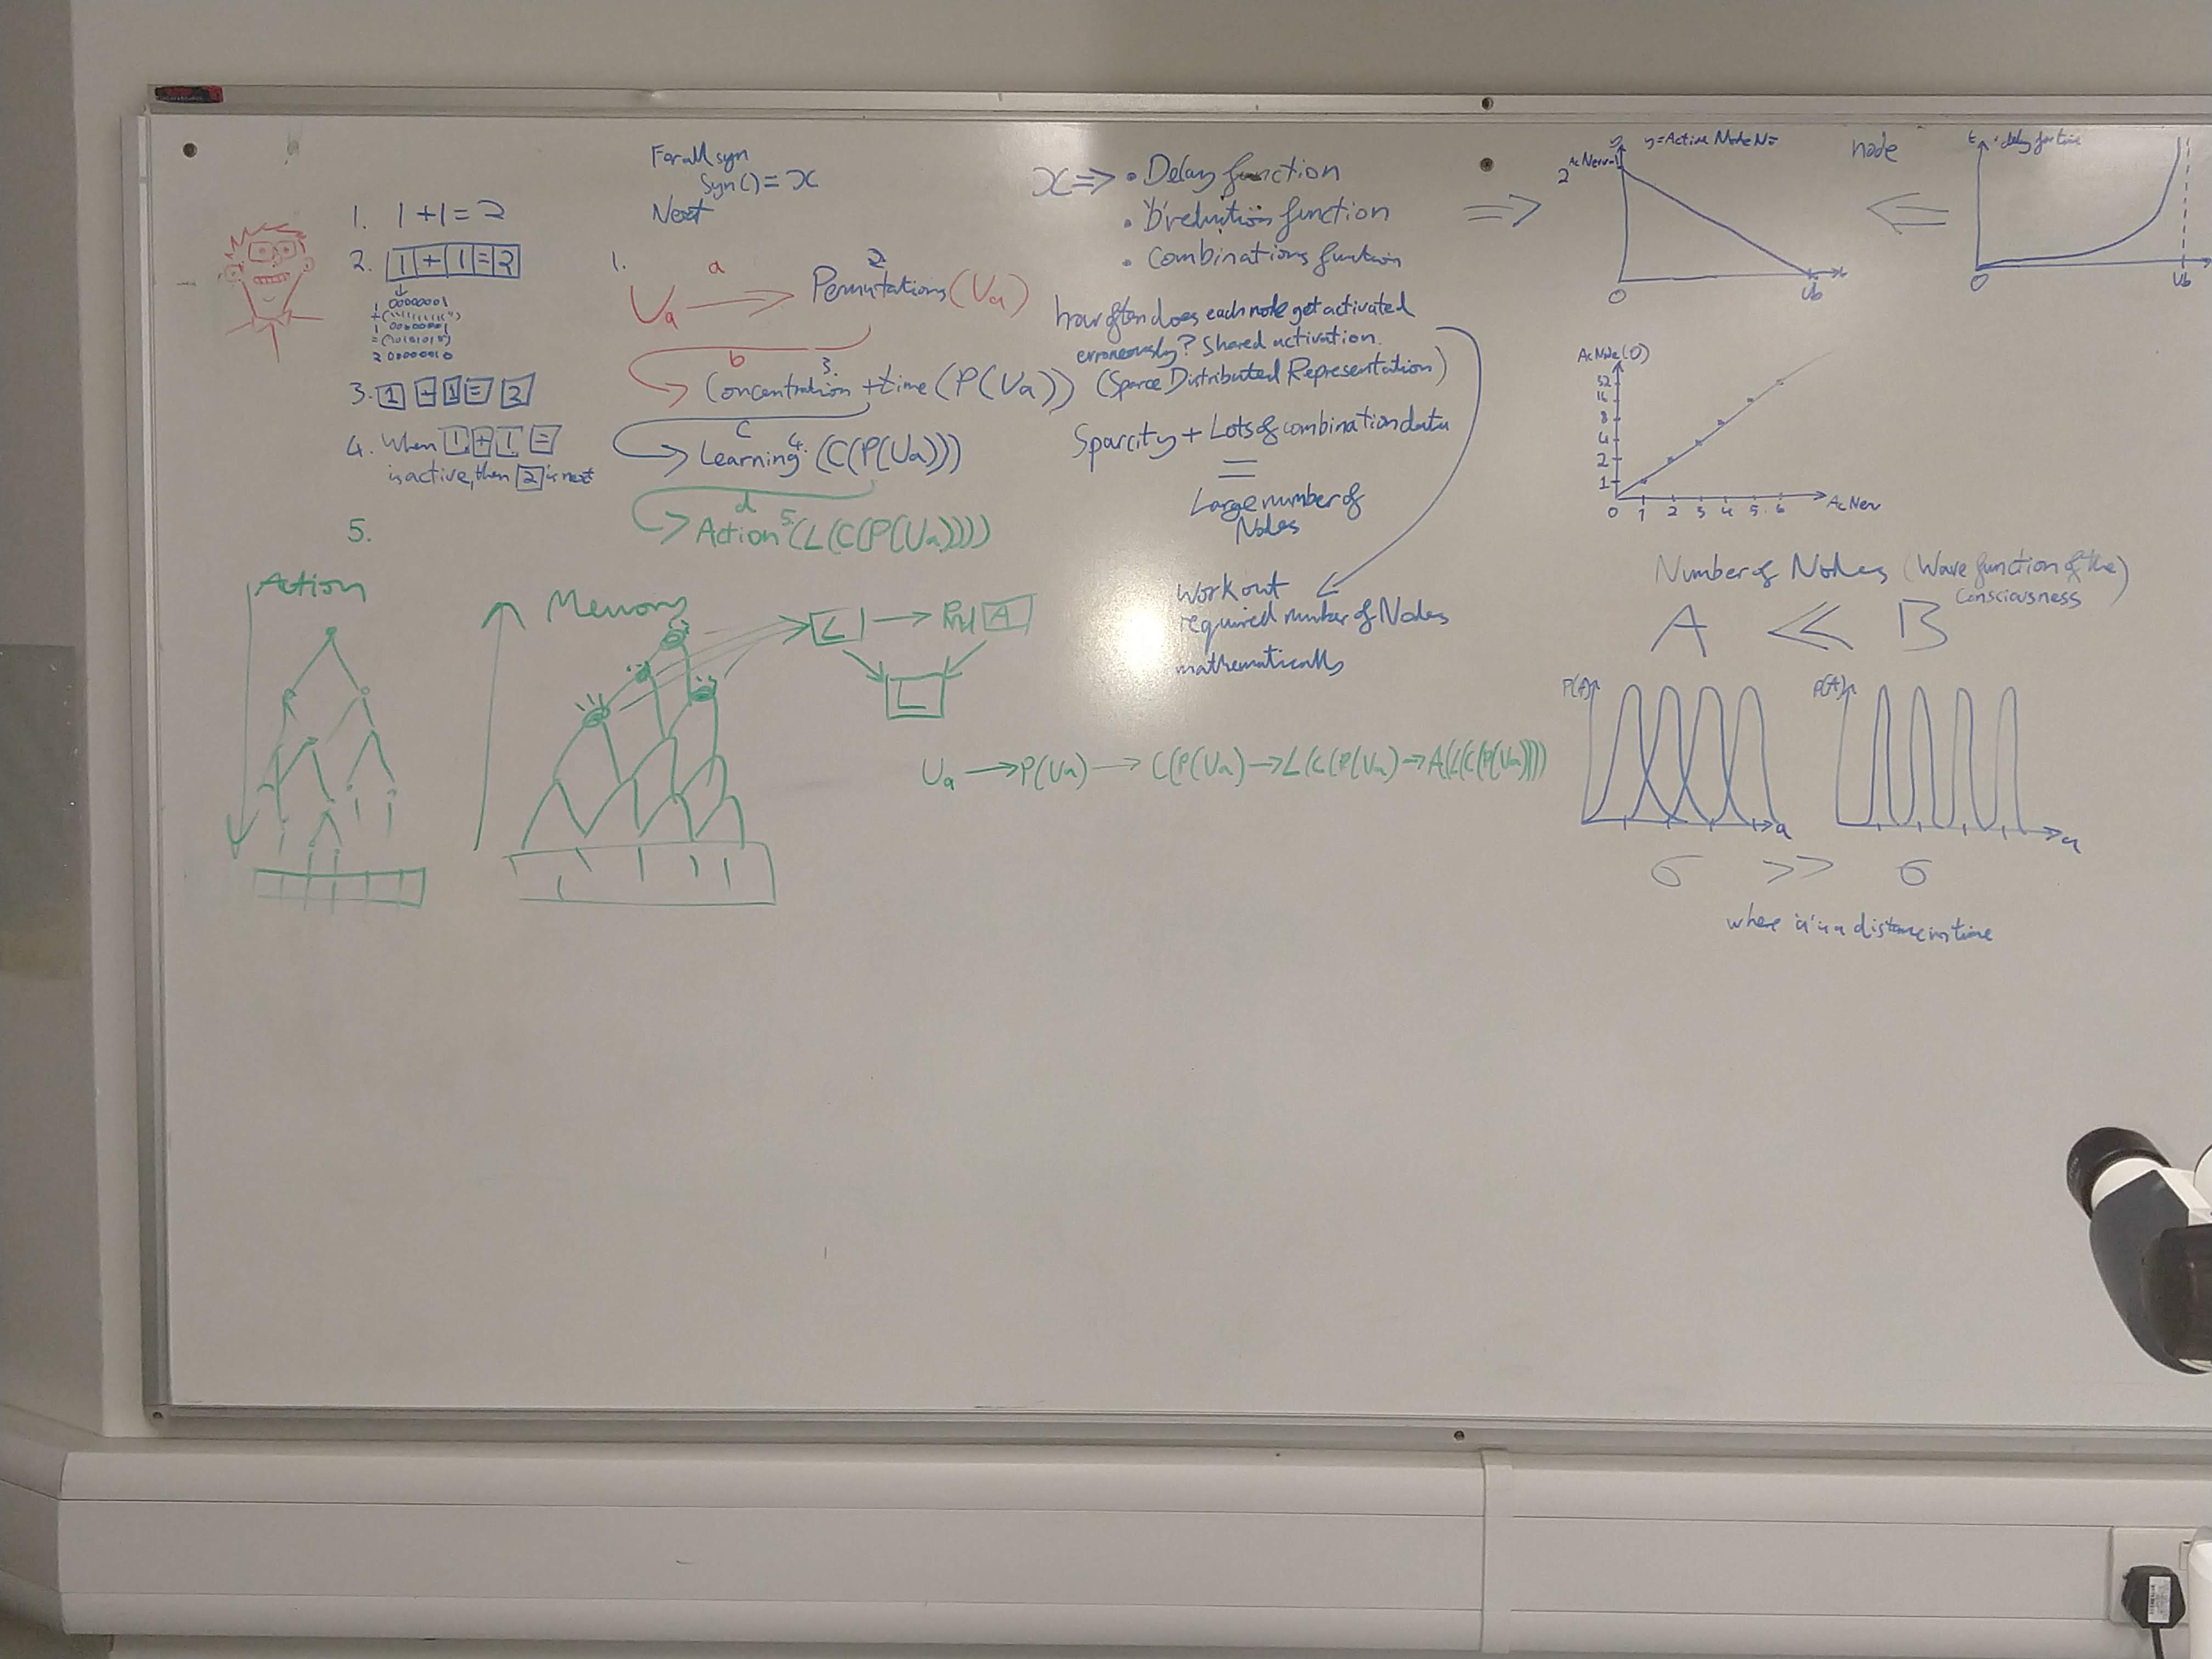 1. 1+1=2
2. 1+1=2
1 00000001
1 00000001
2 00000010
3. 1 + 1 = 2
4. When 1 + 1 =
is active, then 2 is next
5.
For all syn
Syn()=x
Next
1.
a
Ua
2
Permutations(Ua)
b
3.
Concentration +time(P(Ua))
c
Learning 4. (C(P(Ua)))
d
Action 5 (L(C(P(Ua))))
x ⇒ • Delay function
• function
• Combinations function
how often does each node get activated
erroneously? Shared activation.
(Sparce Distributed Representation)
Sparcity + Lots of combination data
=
Large number of
Nodes
Work out
required number of Nodes
mathematically
Action
Memory
L → A
L
Ua → P(Ua) → C(P(Ua) → L(C(P(Ua) → A(L(C(P(Ua))))
y=Active Node N=
2 AcNerv-1
0 Ub
node
t = delay for time
0 Ub
AcNode(0)
32
16
8
4
2
1
0 1 2 3 4 5 6 AcNerv
Number of Nodes (Wave function of the
Consciousness)
A ≪ B
P(A) a
P(A) a
σ >> σ
where 'a' is a distance in time